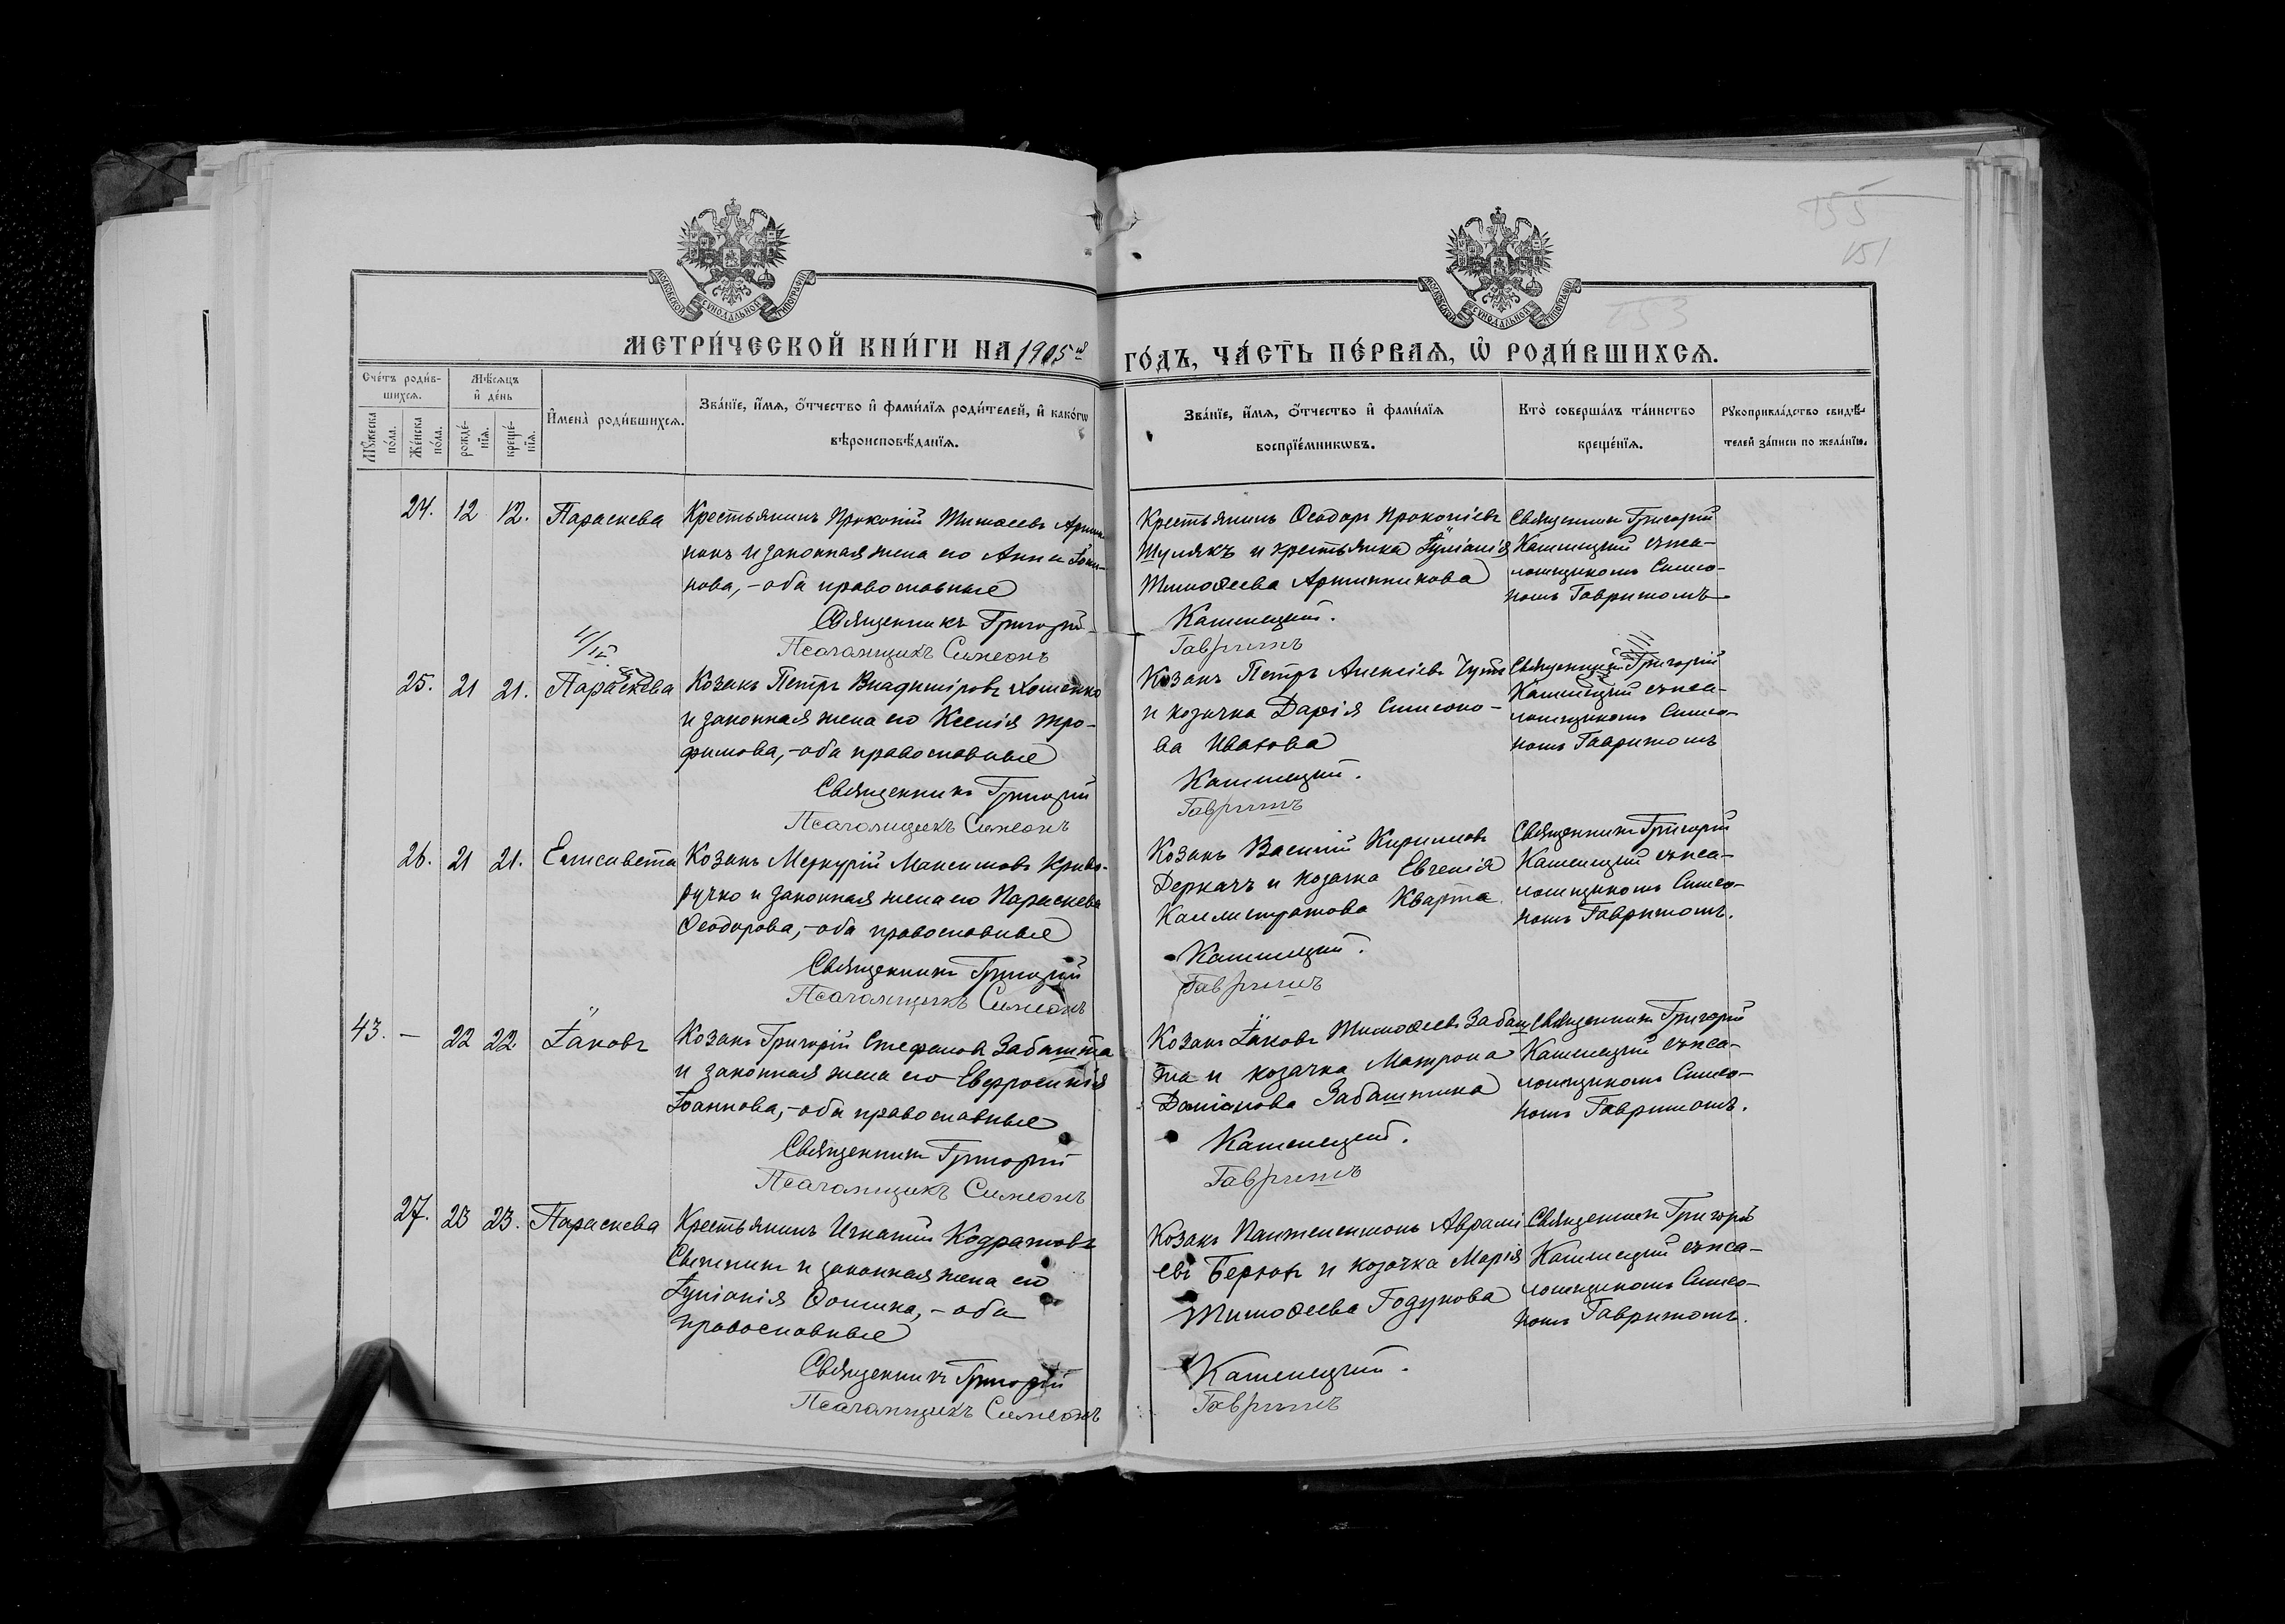 155
151
153
МОСКОВСКОЙ СУНОДАЛЬНОЙ ТИПОГРАФІИ
МОСКОВСКОЙ СУНОДАЛЬНОЙ ТИПОГРАФІИ
МЕТРИ́ЧЕСКОЙ КНИ́ГИ НА 1905 й
ГО́ДЪ, ЧА́СТЬ ПЕ́РВАЯ, Ѡ҆ РОДИ́ВШИХСЯ.
Сче́тъ роди́в-
шихся.
Мѣ́сяцъ
и҆ де́нь
Мꙋ́жеска
по́ла.
Же́нска
по́ла.
рожде́-
нїя.
креще́-
нїя.
И҆мена̀ роди́вшихся.
Зва́нїе, и҆́мя, ѻ҆́тчество и҆ фами́лїя роди́телей, и҆ како́гѡ
вѣроисповѣ́данїя.
Зва́нїе, и҆́мя, ѻ҆́тчество и҆ фами́лїя
воспрїе́мникѡвъ.
Кто̀ соверша́лъ та́инство
креще́нїя.
Рꙋкоприкла́дство свидѣ́-
телей за́писи по жела́нїю.
24. 12 12. Параскева
Крестьянинъ Прокопій Тимоѳеевъ
и законная жена его Анна
нова, - оба православные
Священникъ Григорій
Псаломщикъ Симеонъ
Крестьянинъ Ѳеодоръ Прокопіевъ
Шулякъ и крестьянка Іуліанія
Тимоѳеева Артинникова
Каменецкій.
Гавришъ
Священникъ Григорій
Каменецкій съ пса-
ломщикомъ Симео-
номъ Гавришомъ
25. 21 21. Параскева
Козакъ Петръ Владиміровъ Хоменко
и законная жена его Ксенія Тро-
фимова, - оба православные
Священникъ Григорій
Псаломщикъ Симеонъ
Козакъ Петръ Алексіевъ
и козачка Дарія Симеоно-
ва Ивахова
Каменецкій.
Гавришъ
Священникъ Григорій
Каменецкій съ пса-
ломщикомъ Симео-
номъ Гавришомъ
26. 21 21. Елисавета
Козакъ Меркурій Максимовъ Криво-
ручко и законная жена его Параскева
Ѳеодорова, - оба православные
Священникъ Григорій
Псаломщикъ Симеонъ
Козакъ Василій Кирилловъ
Деркачъ и козачка Евгенія
Каллистратова Кварта
Каменецкій.
Гавришъ
Священникъ Григорій
Каменецкій съ пса-
ломщикомъ Симео-
номъ Гавришомъ.
43. — 22 22 Іаковъ
Козакъ Григорій Стефановъ Забашта
и законная жена его Евфросинія
Іоаннова, - оба православные
Священникъ Григорій
Псаломщикъ Симеонъ
Козакъ Іаковъ Тимоѳеевъ Забаш
та и козачка Матрона
Даміанова Забаштина
Каменецкій.
Гавришъ
Священникъ Григорій
Каменецкій съ пса-
ломщикомъ Симео-
номъ Гавришомъ.
27. 23 23. Параскева
Крестьянинъ Игнатій Кодратовъ
и законная жена его
Іуліанія Ѳомина, - оба
православные
Священникъ Григорій
Псаломщикъ Симеонъ
Козакъ Пантелеимонъ Авраамі
евъ и козачка Марія
Тимоѳеева Годунова
Каменецкій.
Гавришъ
Священникъ Григорій
Каменецкій съ пса-
ломщикомъ Симео-
номъ Гавришомъ.